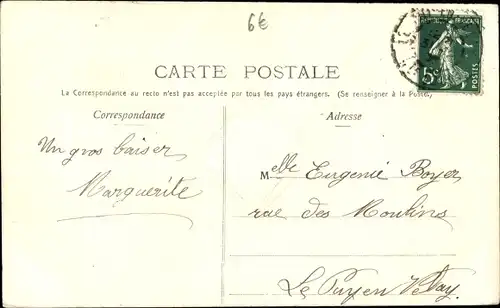 6€
REPUBLIQUE FRANÇAISE
5c
POSTES
CARTE POSTALE
La Correspondance au recto n'est pas acceptée par tous les pays étrangers. (Se renseigner à la Poste.)
Correspondance
Adresse
Un gros baiser
Marguerite
Melle Eugenié Boyer
rue des Moulins
Le Puy en Velay.